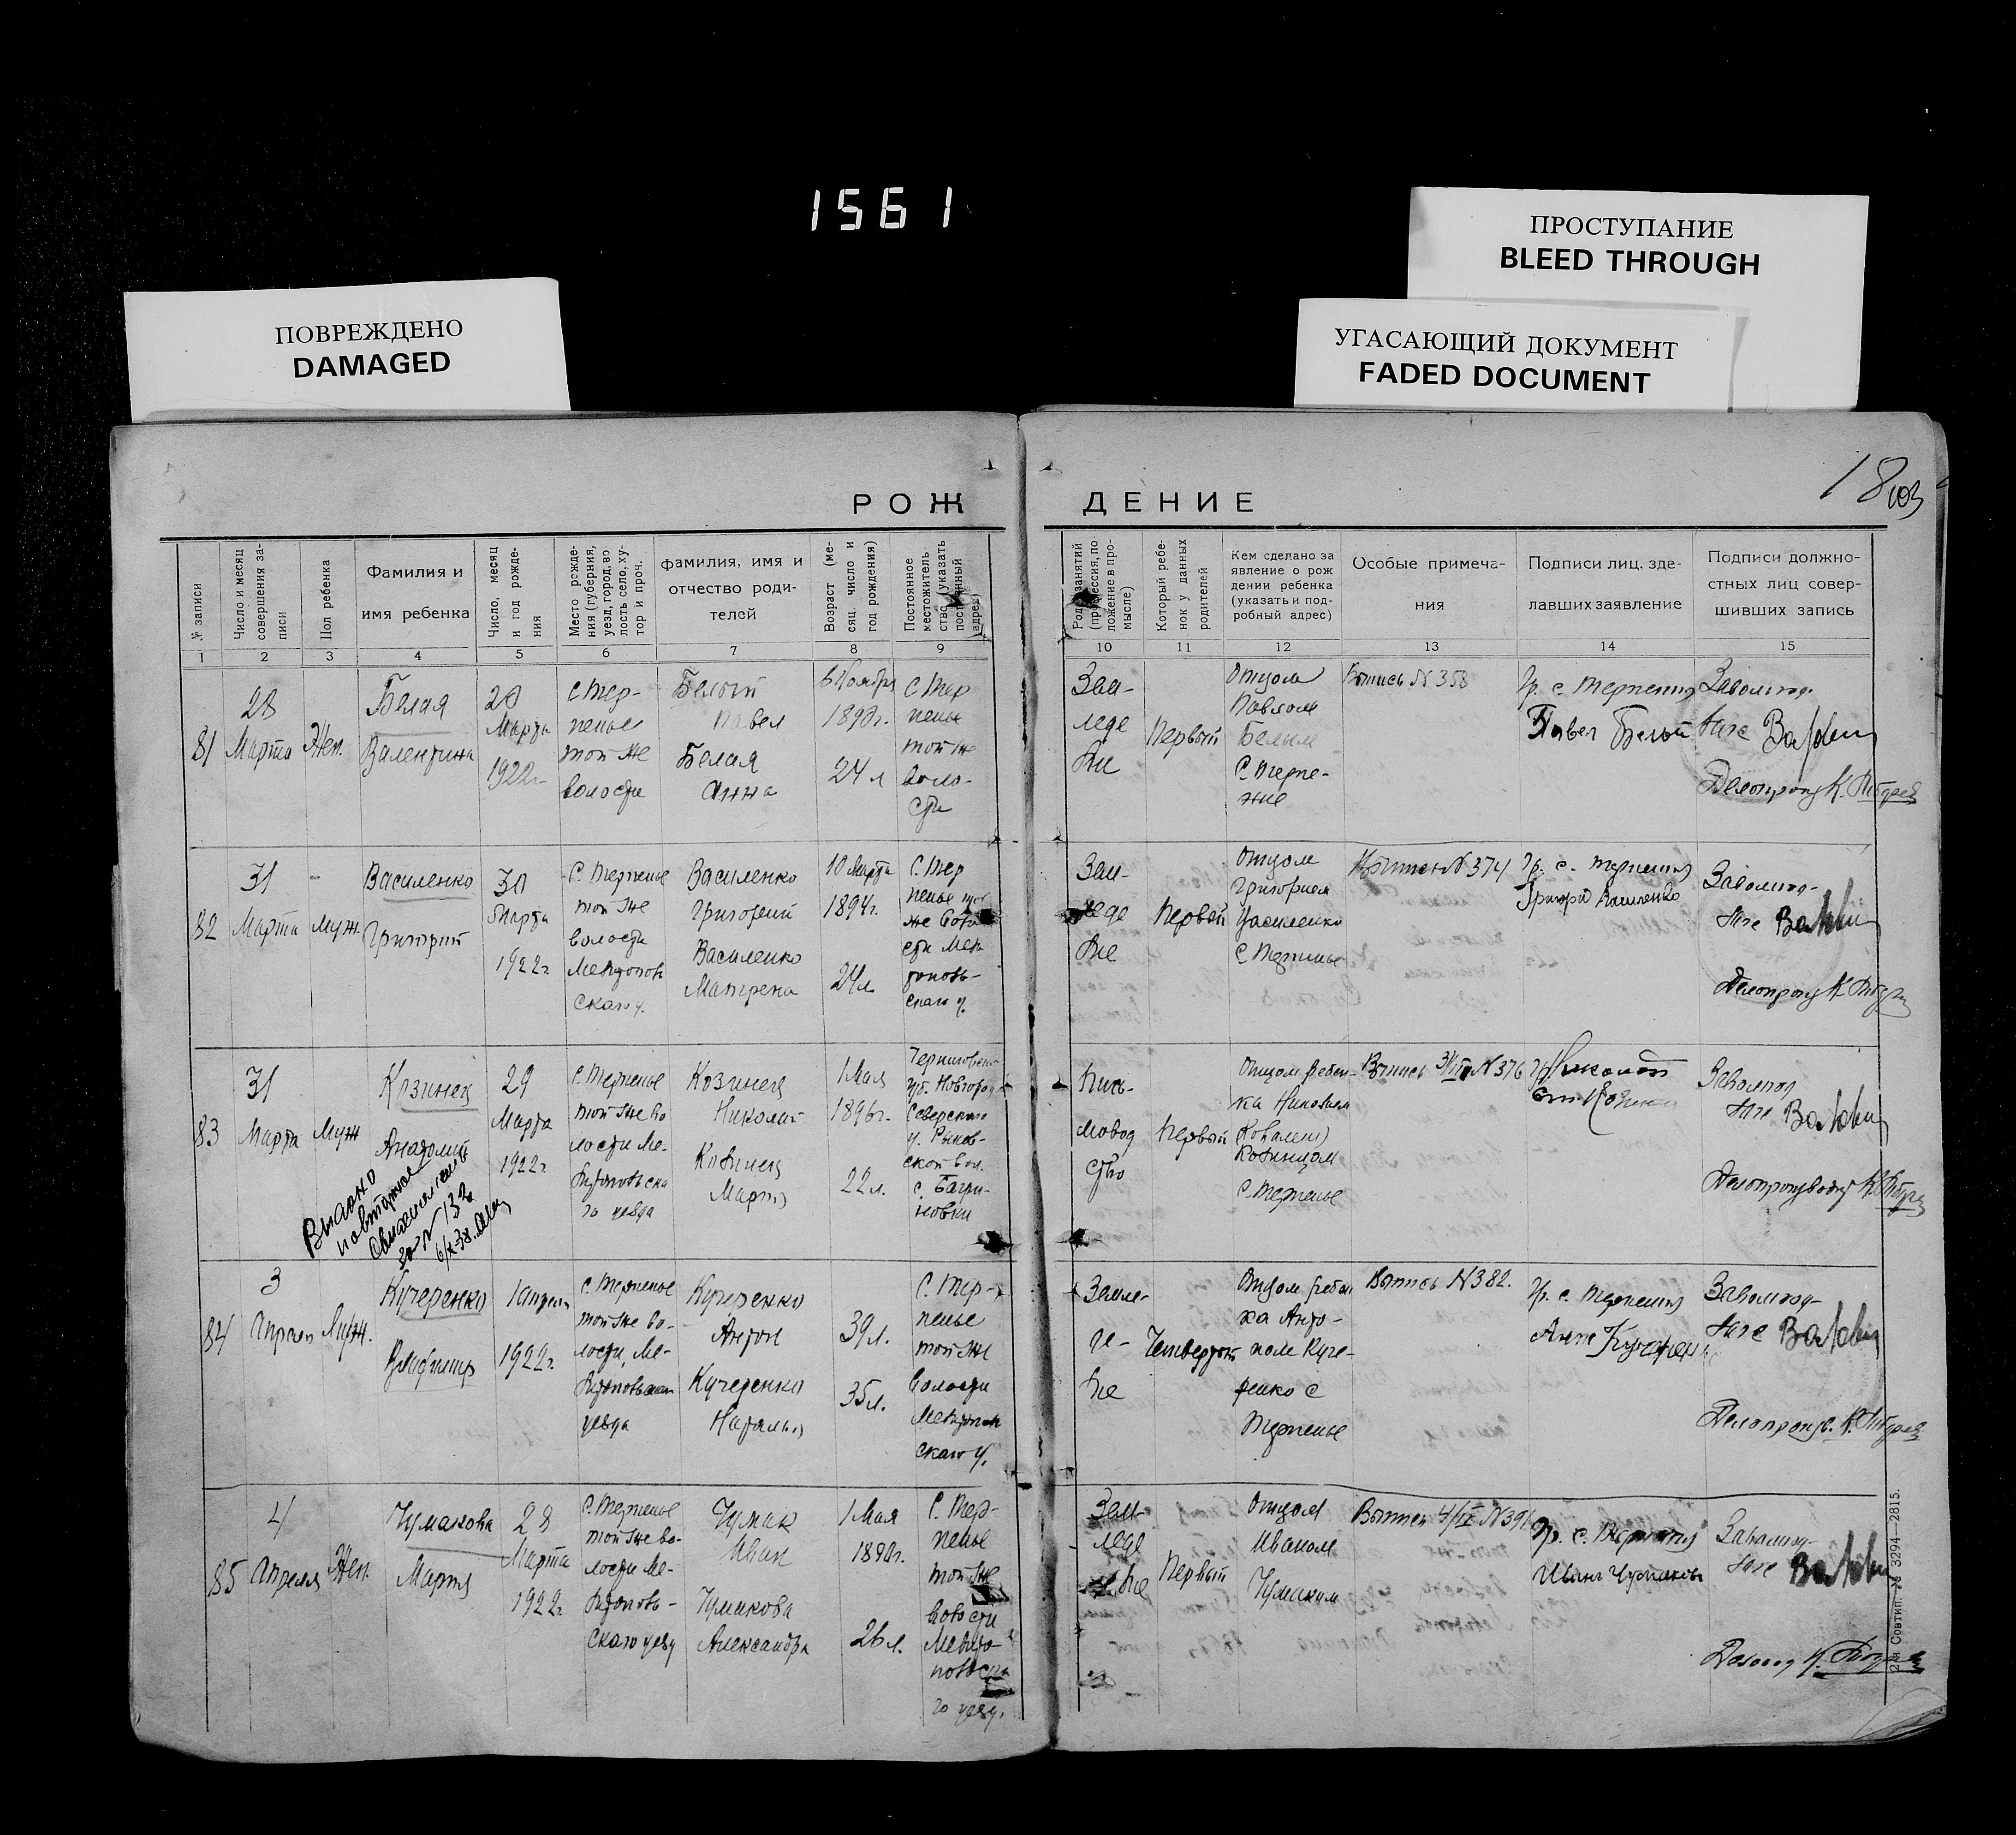 1561
ПРОСТУПАНИЕ
BLEED THROUGH
ПОВРЕЖДЕНО
DAMAGED
УГАСАЮЩИЙ ДОКУМЕНТ
FADED DOCUMENT
18
103
РОЖДЕНИЕ
№ записи
Число и месяц
совершения за-
писи
Пол ребенка
Фамилия и
имя ребенка
Число, месяц
и год рожде-
ния
Место рожде-
ния (губерния,
уезд, город, во
лость село, ху-
тор и проч.
Фамилия, имя и
отчество роди-
телей
Возраст (ме-
сяц, число и
год рождения)
Постоянное
местожитель-
ство (указать
адрес)
Род занятий
(профессия, по
ложение в про-
мысле)
Который ребе-
нок у данных
родителей
Кем сделано за
явление о рож
дении ребенка
(указать и под-
робный адрес)
Особые примеча-
ния
Подписи лиц, зде-
лавших заявление
Подписи должно-
стных лиц совер-
шивших запись
1 2 3 4 5 6 7 8 9 10 11 12 13 14 15
81
28
Марта
Жен.
Белая
Валентина
28
Марта
1922г
с Тер-
пенье
той же
волости
Белый
Павел
Белая
Анна
6 Ноября
1898г.
24 л
с Тер
пенье
той же
воло-
сти
Зем-
леде
лие
Первый
Отцом
Павлом
Белым
С. Терпе-
ние
Выпись N 358
Гр. с. Терпения
Павел Белый
82
31
Марта
Муж.
Василенко
Григорий
30
Марта
1922г
С. Терпенье
той же
волости
Мелитопов
скаго у.
Василенко
Григорий
Василенко
Матрена
10 Марта
1894г.
24л
С. Тер
пенье той
же воло
сти Мел
топовь-
скаго у.
Зем-
леде
лие
Первый
Отцом
Григорием
Василенко
С. Терпенье
N 374
Гр. с. Терпения
Григорий Василенко
83
31
Марта
Муж
Козинец
Анатолий
29
Марта
1922г
С. Терпенье
той же во
лости Ме-
литоповска
го уезда
Козинец
Николай
Козинец
Мария
1 Мая
1896г.
22 л.
Черниговской
губ. Новгород
Северского
у. Рыков-
ской вол.
с. Багри-
новки
Пись-
мовод
ство
Первый
Отцом ребен-
ка Николаем
Козинцом
С. Терпенье
Выпись 31/III N 376
Выдано
повторное
свидетельство
за N 132
6/X-38.
84
3
Апреля
Муж.
Кучеренко
Владимир
1 апреля
1922г.
С. Терпенье
той же во-
лости, Ме-
литоповскаго
уезда
Кучеренко
Антон
Кучеренко
Наталья
39 л.
35 л.
С. Тер-
пенье
той же
волости
Мелитопов
скаго у.
Земле-
де-
лие
Четвертый
Отцом ребен
ка Анто-
ном Куче-
ренко с
Терпенье
Выпись N 382.
Гр. с. Терпения
85
4
Апреля
Жен.
Чумакова
Мария
28
Марта
1922г
С. Терпенье
той же во-
лости Ме-
литоповь-
скаго уезд
Чумак
Иван
Чумакова
Александра
1 Мая
1898г.
26 л.
С. Тер-
пенье
той же
волости
Мелито-
повска
го уезд.
Зем-
леде
лие
Первый
Отцом
Иваном
Чумаком
Выпись 4/IV N 391
Гр. с. Терпения
Иван Чумаков
Совтип. № 3294—2815.